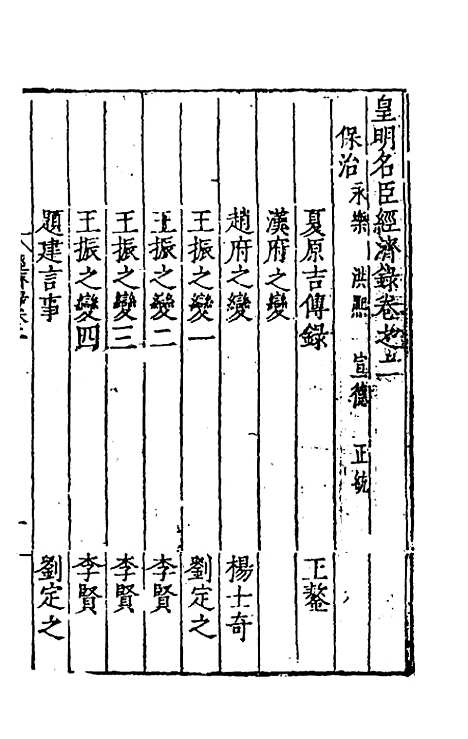 皇明名臣經濟錄卷之二
保治 永樂 洪熙 宣德 正統
夏原吉傳録 王鏊
漢府之變
趙府之變 楊士奇
王振之變一 劉定之
王振之變二 李賢
王振之變三 李賢
王振之變四 李賢
題建言事 劉定之